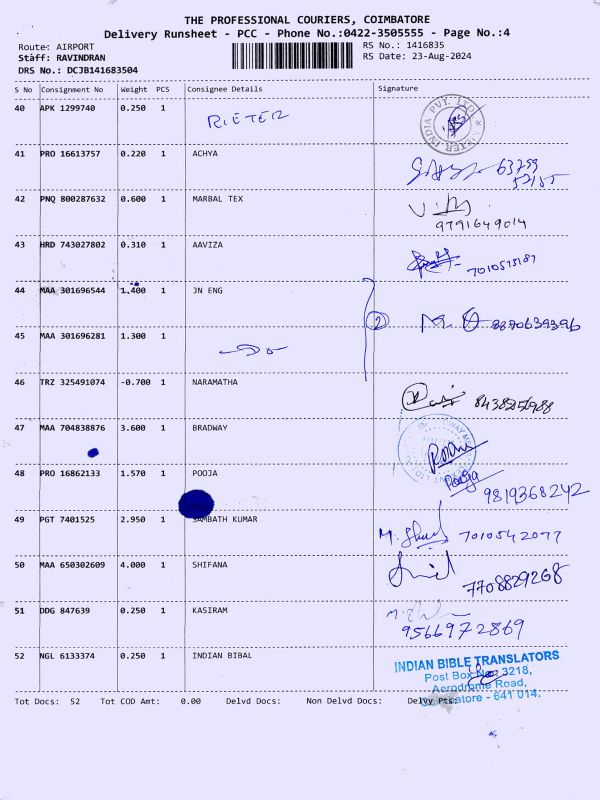 THE PROFESSIONAL COURIERS, COIMBATORE
Delivery Runsheet - PCC - Phone No.:0422-3505555 - Page No.:4
Route: AIRPORT RS No.: 1416835
Staff: RAVINDRAN RS Date: 23-Aug-2024
DRS No.: DCJB141683504
S No Consignment No Weight PCS Consignee Details Signature
40 APK 1299740 0.250 1 RIETER
41 PRO 16613757 0.220 1 ACHYA 63799
42 PNQ 800287632 0.600 1 MARBAL TEX
9791649014
43 HRD 743027802 0.310 1 AAVIZA
44 MAA 301696544 1.400 1 JN ENG
2 8870639396
45 MAA 301696281 1.300 1
Do
46 TRZ 325491074 -0.700 1 NARAMATHA 8438256988
47 MAA 704838876 3.600 1 BRADWAY
48 PRO 16862133 1.570 1 POOJA Pooja
9819368242
49 PGT 7401525 2.950 1 SAMBATH KUMAR 7010542077
50 MAA 650302609 4.000 1 SHIFANA
7708829268
51 DDG 847639 0.250 1 KASIRAM
9566972869
52 NGL 6133374 0.250 1 INDIAN BIBAL
INDIAN BIBLE TRANSLATORS
Post Box No. 3218,
Aerodrome Road,
Coimbatore - 641 014.
Tot Docs: 52 Tot COD Amt: 0.00 Delvd Docs: Non Delvd Docs: Delvy Pts: